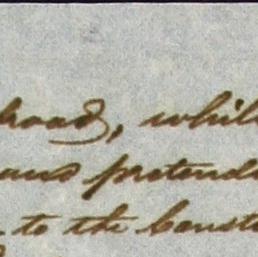 hood, whil
ans pretend
to the Const